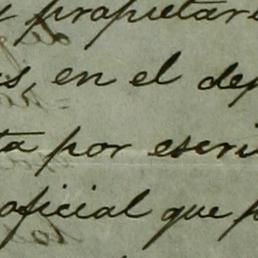 y propietari
s, en el dep
ta por escri
oficial que p